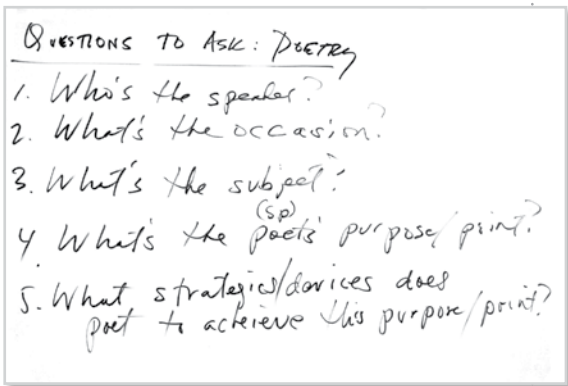 QUESTIONS TO ASK: POETRY
1. Who's the speaker?
2. What's the occasion?
3. What's the subject?
(sp)
4. What's the poet's purpose/point?
5. What strategies/devices does
poet to acheieve this purpose/point?